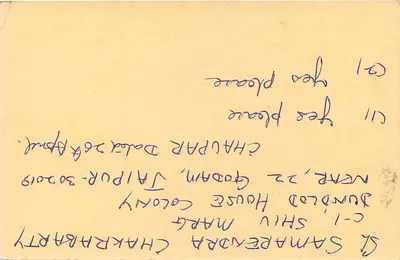 Sl. SAMARENDRA CHAKRABARTY
C-1, SHIV MARG
DUNDLOD HOUSE COLONY
NEAR, 22 GODAM, JAIPUR-302019
CHAUPAR Dated 26th April.
(1) Yes please
(2) Yes please